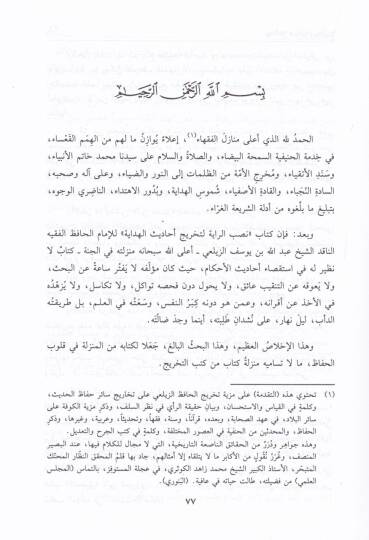 بسم الله الرحمن الرحيم
الحمدُ لله الذي أعلى منازلَ الفقهاء(١)، إعلاءً يُوازِنُ ما لهم من الهِمَم القَعْساء،
في خدمة الحنيفية السمحة البيضاء، والصلاةُ والسلام على سيدنا محمد خاتم الأنبياء،
وسَنَدِ الأتقياء، ومُخرِجِ الأمّة من الظلمات إلى النور والضياء، وعلى آله وصحبه،
السادةِ النُّجَباء، والقادةِ الأصفياء، شُموسِ الهداية، وبُدُور الاهتداء، الناضِري الوجوه،
بتبليغ ما بلَغوه من أدلة الشريعة الغرّاء.
وبعد: فإن كتاب «نصب الراية لتخريج أحاديث الهداية» للإمام الحافظ الفقيه
الناقد الشيخ عبد الله بن يوسف الزيلعي ـ أعلى الله سبحانه منزلته في الجنة ـ كتابٌ لا
نظير له في استقصاء أحاديث الأحكام، حيث كان مؤلّفه لا يَفْتُر ساعةً عن البحث،
ولا يَعوقه عن التنقيب عائق، ولا يحول دون فحصه تواكل، ولا تكاسل، ولا يُزهّدُه
في الأخذ عن أقرانه، وعمن هو دونه كِبَرُ النفس، وسَعَتُه في العلم، بل طريقتُه
الدأب، ليلَ نهار، على نُشدانِ طَلِبته، أينما وجدَ ضالّتَه.
وهذا الإخلاصُ العظيم، وهذا البحثُ البالغ، جَعَلا لكتابه من المنزلة في قلوب
الحفاظ، ما لا تساميه منزلةُ كتاب من كتب التخريج.
(١) تحتوي هذه (التقدمة) على مزية تخريج الحافظ الزيلعي على تخاريج سائر حفاظ الحديث،
وكلمةٍ في القياس والاستحسان، وبيانِ حقيقة الرأي في نظر السلف، وذكرِ مزية الكوفة على
سائر البلاد، في عهد الصحابة، وبعده، قرآناً، وسنة، فقهاً، وتحديثاً، وعربية، وغيرها، وذكرِ
الحفاظ، والمحدثين من الحنفية في العصور المختلفة، وكلمةٍ في كتب الجرح والتعديل.
وهذه جواهر ودُرَر من الحقائق الناصعة التاريخية، التي لا مجال للكلام فيها، عند البصير
المنصف، وغُرَرُ نُقُولٍ من الأكابر ما لا يتلقاه إلا أمثالهم، جاد بها قلمُ المحقق النظّار المحنّك
المتبحّر، الأستاذ الكبير الشيخ محمد زاهد الكوثري، في عجلة المستوفز، بالتماس (المجلس
العلمي) من فضيلته، طالت حياته في عافية. (البنوري).
٧٧